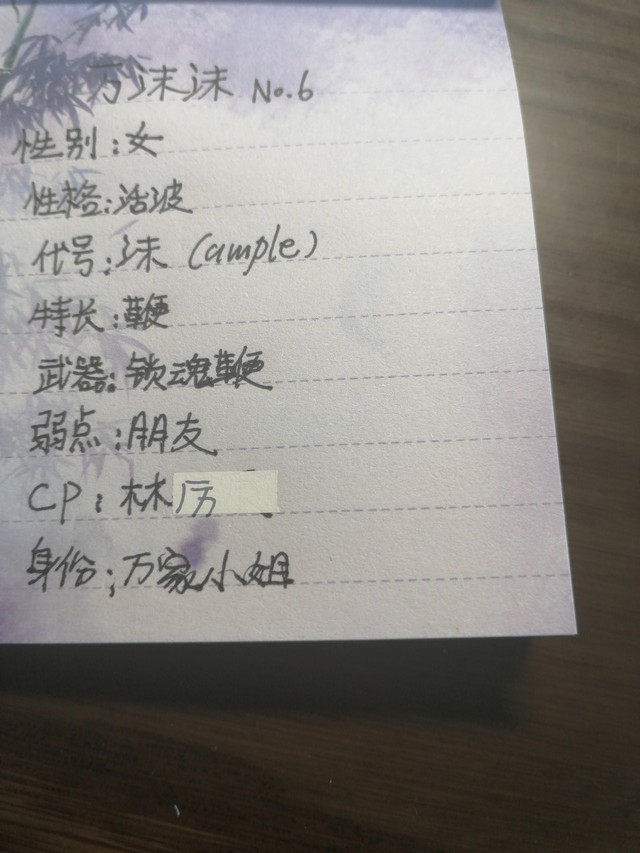 万沫沫 No.6
性别:女
性格:活波
代号:沫 (ample)
特长:鞭
武器:锁魂鞭
弱点:朋友
CP:林厉
身份:万家小姐